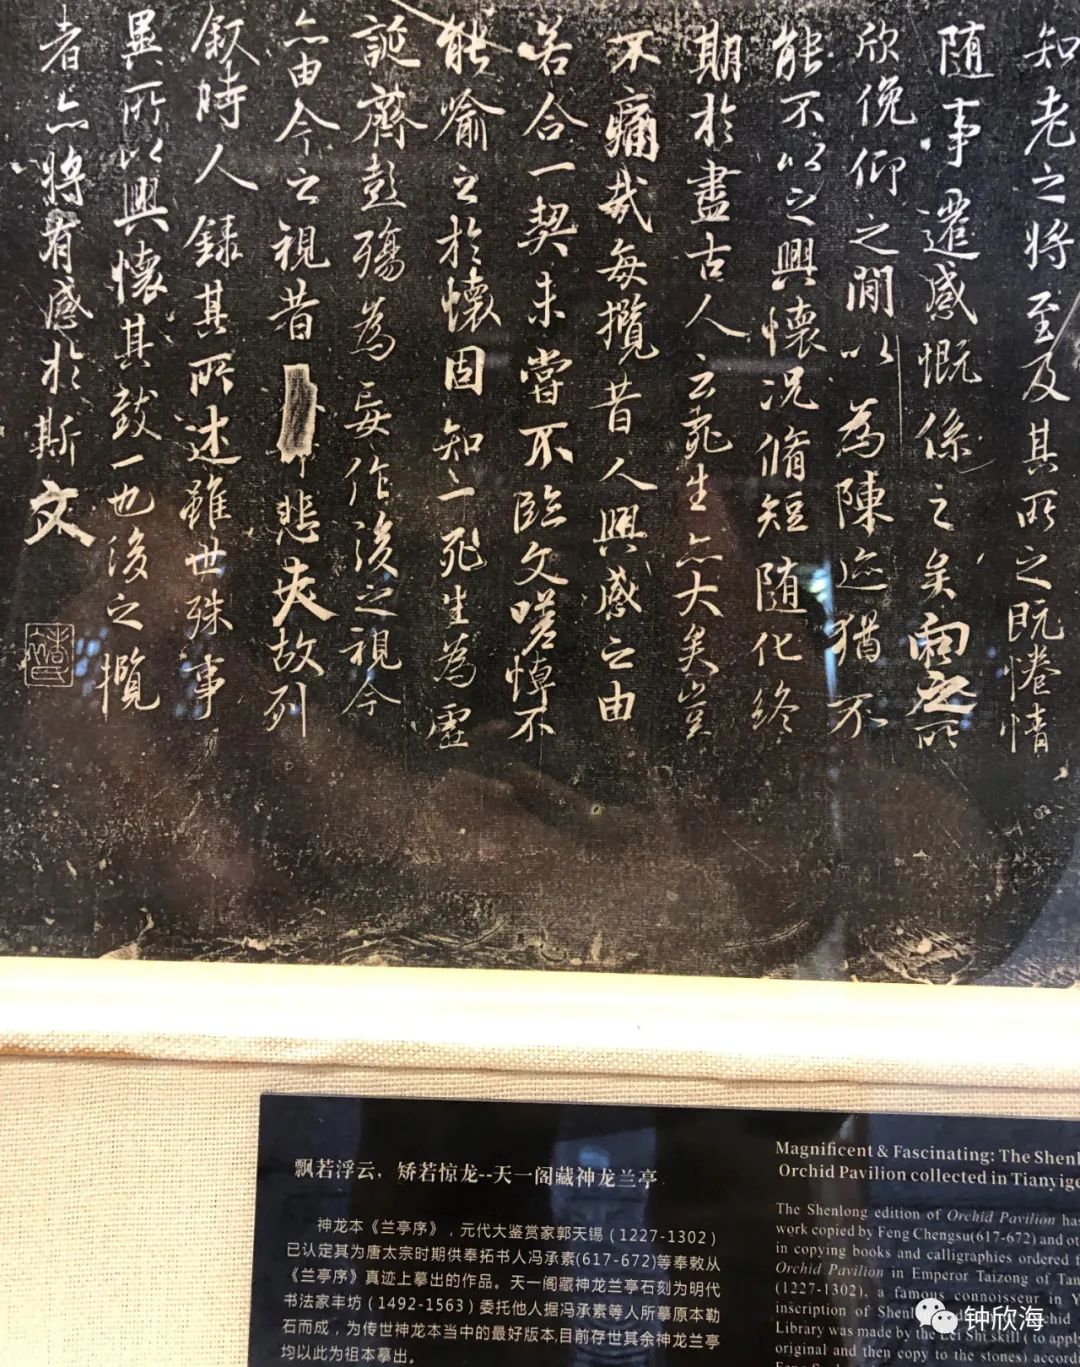 知老之将至及其所之既惓情
随事遷感慨係之矣向之所
欣俛仰之閒以為陳迹猶不
能不以之興懷况脩短随化終
期於盡古人云死生亦大矣豈
不痛哉每攬昔人興感之由
若合一契未嘗不臨文嗟悼不
能喻之於懷固知一死生為虛
誕齊彭殤為妄作後之視今
亦由今之視昔悲夫故列
叙時人錄其所述雖世殊事
異所以興懷其致一也後之攬
者亦將有感於斯文
飘若浮云，矫若惊龙--天一阁藏神龙兰亭
神龙本《兰亭序》，元代大鉴赏家郭天锡（1227-1302）
已认定其为唐太宗时期供奉拓书人冯承素(617-672)等奉敕从
《兰亭序》真迹上摹出的作品。天一阁藏神龙兰亭石刻为明代
书法家丰坊（1492-1563）委托他人据冯承素等人所摹原本勒
石而成，为传世神龙本当中的最好版本,目前存世其余神龙兰亭
均以此为祖本摹出。
Magnificent & Fascinating: The Shenl
Orchid Pavilion collected in Tianyige
The Shenlong edition of Orchid Pavilion has
work copied by Feng Chengsu(617-672) and ot
in copying books and calligraphies ordered
Orchid Pavilion in Emperor Taizong of Tan
(1227-1302), a famous connoisseur in Y
inscription of Shenl
Library was made by the Lei Shi skill ( to apply
original and then copy to the stones) accord
钟欣海